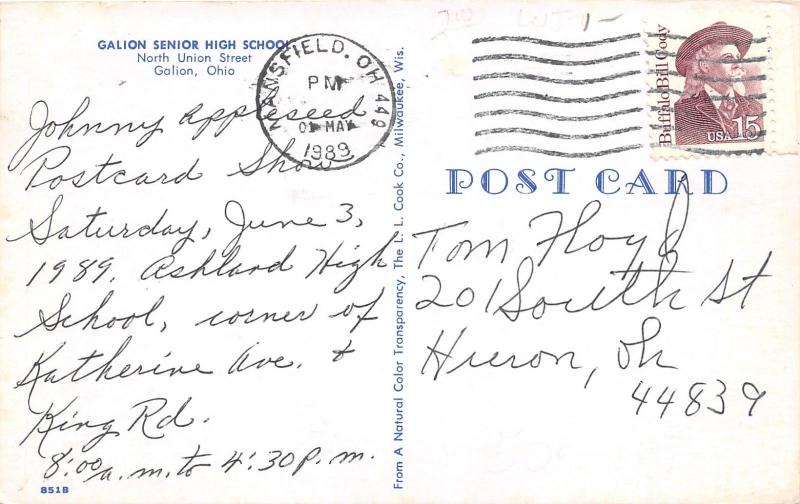 GALION SENIOR HIGH SCHOOL
North Union Street
Galion, Ohio
Johnny Appleseed
Postcard Show
Saturday, June 3,
1989. Ashland High
School, corner of
Katherine Ave. &
King Rd.
8:00 a.m. to 4:30 p.m.
851B
From A Natural Color Transparency, The L. L. Cook Co., Milwaukee, Wis.
MANSFIELD, OH 449
PM
01 MAY
1989
Buffalo Bill Cody
USA 15
POST CARD
Tom Floyd
201 South St
Huron, Oh
44839